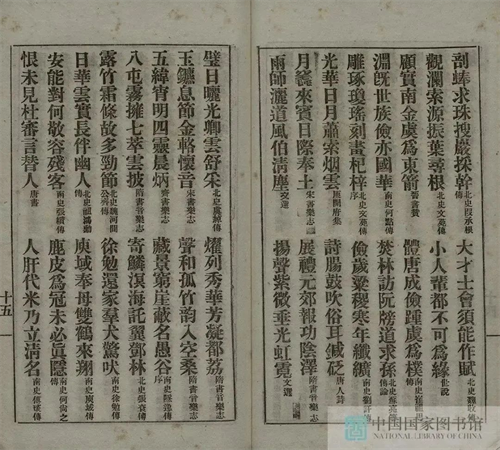 剖蚌求珠搜嚴採幹 北史段承根傳
大才士會須能作賦 北史魏收傳
觀瀾索源振葉尋根
小人輩都不可為緣 世說
顧實南金虞為東箭 晉書贊
體唐成儉踵虞為樸
淵既世族儉亦國華 南史何點傳
焚林訪阮牓道求孫
雕琢瓊瑤刻畫杞梓 北史文苑傳序
儉歲粱稷寒年纖纊 南史劉訏傳
光華日月蕭索烟雲
詩腸鼓吹俗耳鍼砭 唐人詩
月竁來賓日際奉土 宋書樂志
展禮元郊報功陰澤 隋書音樂志
雨師灑道風伯清塵 文選
揚聲紫微垂光虹霓 文選
璧日曬光卿雲舒采 北史虞綽傳
燿列秀華芳凝都荔 隋書音樂志
玉鑣息節金輅懷音 宋書樂志
聲和孤竹韻入空桑 隋書音樂志
五緯宵明四靈晨炳 隋書音樂志
藏景窮崖蔽名愚谷 南史隱逸傳
八屯霧擁七萃雲披 隋書音樂志
寄鱗溟海託翼鄧林 北史張袞傳
露竹霜條故多勁節 北史魏河間公齊傳
徐勉還家羣犬驚吠 南史徐勉傳
日華雲實長伴幽人 北史祖鴻勳傳
庾域奉母雙鶴來翔 南史庾域傳
安能對何敬容殘客 南史張纘傳
鹿皮為冠未必真隱 南史何尚之傳
恨未見杜審言替人 唐書
人肝代米乃立清名
十五
中国国家图书馆
NATIONAL LIBRARY OF CHINA